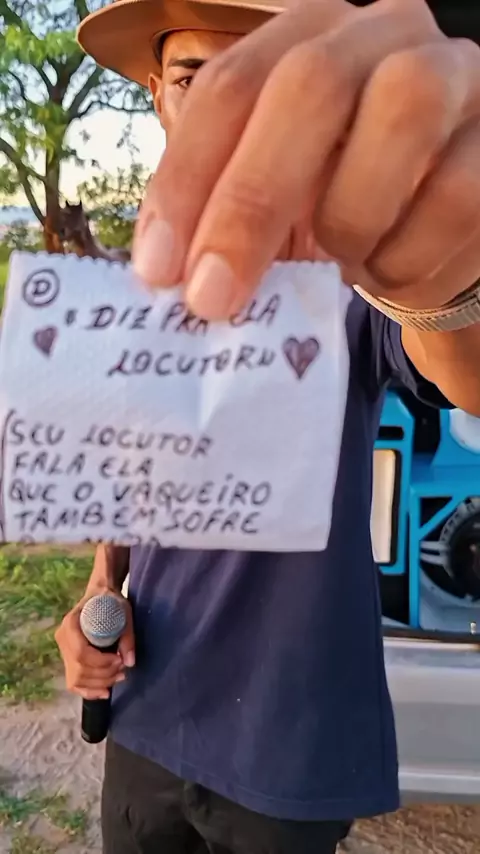 D
" DIZ PRA ELA
LOCUTORN
SEU LOCUTOR
FALA ELA
QUE O VAQUEIRO
TAMBEM SOFRE